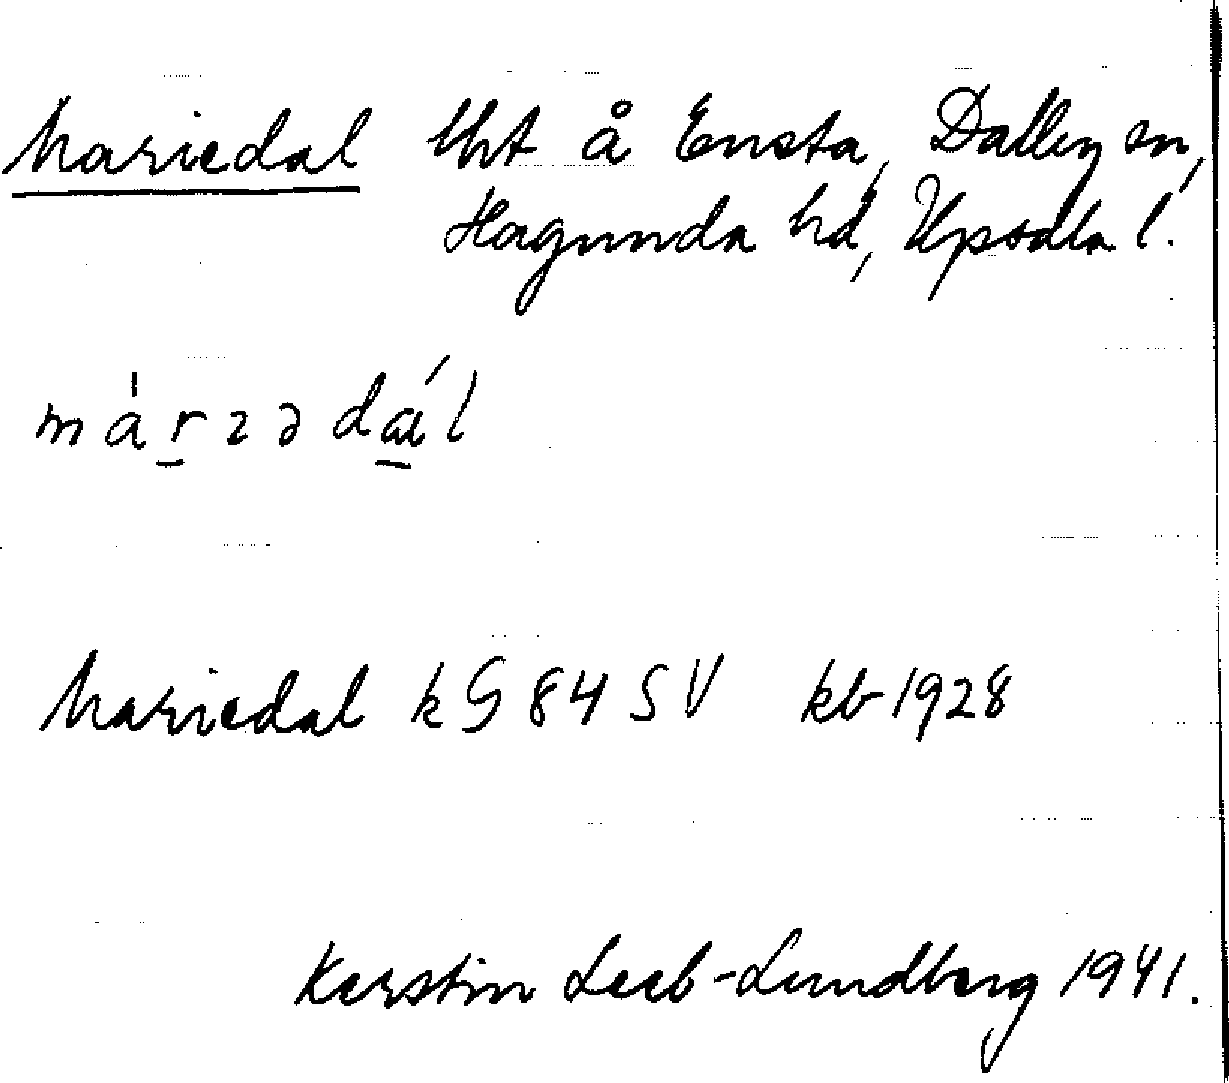 Mariedal lht å Ensta, Dalby sn,
Hagunda hd, Upsala l.
màrɩədál
Mariedal k G 84 SV kb 1928
Kerstin Leeb-Lundberg 1941.